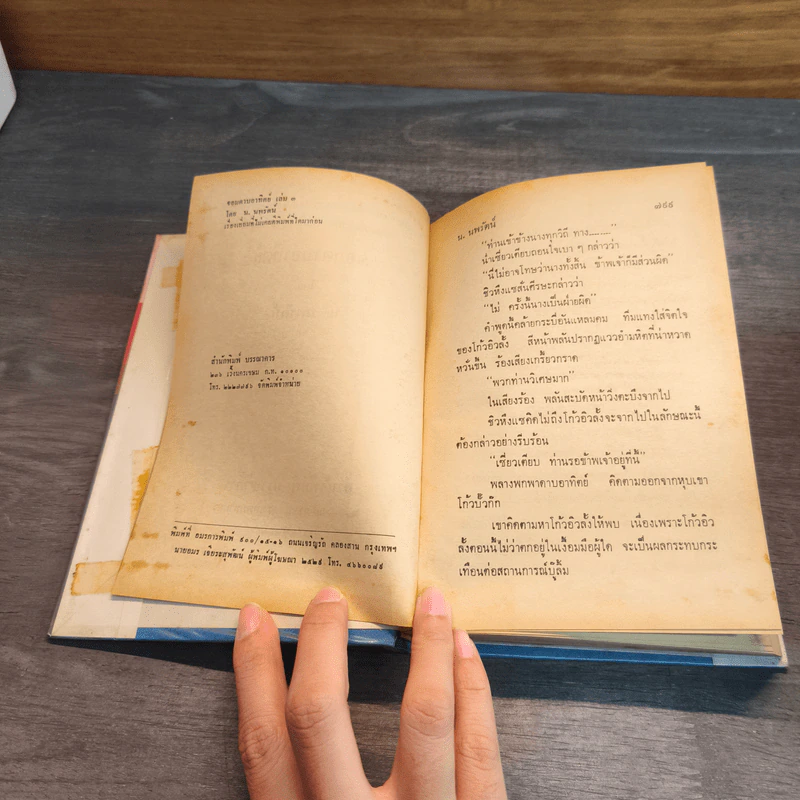 จอมดาบอาทิตย์ เล่ม ๓
โดย น. นพรัตน์
เรื่องเยี่ยมที่ไม่เคยตีพิมพ์ที่ใดมาก่อน
สำนักพิมพ์ บรรณาคาร
๒๓๖ เวิ้งนครเขษม ก.ท. ๑๐๑๐๐
โทร. ๒๒๒๗๗๕๖ จัดพิมพ์จำหน่าย
พิมพ์ที่ อมรการพิมพ์ ๙๐๐/๑๕-๑๖ ถนนเจริญรัถ คลองสาน กรุงเทพฯ
นายอมร เจยะสุพัฒน์ ผู้พิมพ์ผู้โฆษณา ๒๕๒๕ โทร. ๔๖๖๐๐๘๕
น. นพรัตน์
๗๙๙
"ท่านเข้าข้างนางทุกวิถี ทาง........."
น่ำเซี่ยวเตียบถอนใจเบา ๆ กล่าวว่า
"นี่ไม่อาจโทษว่านางทั้งสิ้น ข้าพเจ้าก็มีส่วนผิด"
ซิวหึงแซสั่นศีรษะกล่าวว่า
"ไม่ ครั้งนี้นางเป็นฝ่ายผิด"
คำพูดนี้คล้ายกระบี่อันแหลมคม ทิ่มแทงใส่จิตใจ
ของโก้วอิวลั้ง สีหน้าพลันปรากฏแววอำมหิตที่น่าหวาด
หวั่นขึ้น ร้องเสียงเกรี้ยวกราด
"พวกท่านวิเศษมาก"
ในเสียงร้อง พลันสะบัดหน้าวิ่งตะบึงจากไป
ซิวหึงแซคิดไม่ถึงโก้วอิวลั้งจะจากไปในลักษณะนี้
ต้องกล่าวอย่างรีบร้อน
"เซี่ยวเตียบ ท่านรอข้าพเจ้าอยู่ที่นี่"
พลางพกพาดาบอาทิตย์ ติดตามออกจากหุบเขา
โก้วบั้วก๊ก
เขาติดตามหาโก้วอิวลั้งให้พบ เนื่องเพราะโก้วอิว
ลั้งตอนนี้ไม่ว่าตกอยู่ในเงื้อมมือผู้ใด จะเป็นผลกระทบกระ
เทือนต่อสถานการณ์บู๊ลิ้ม